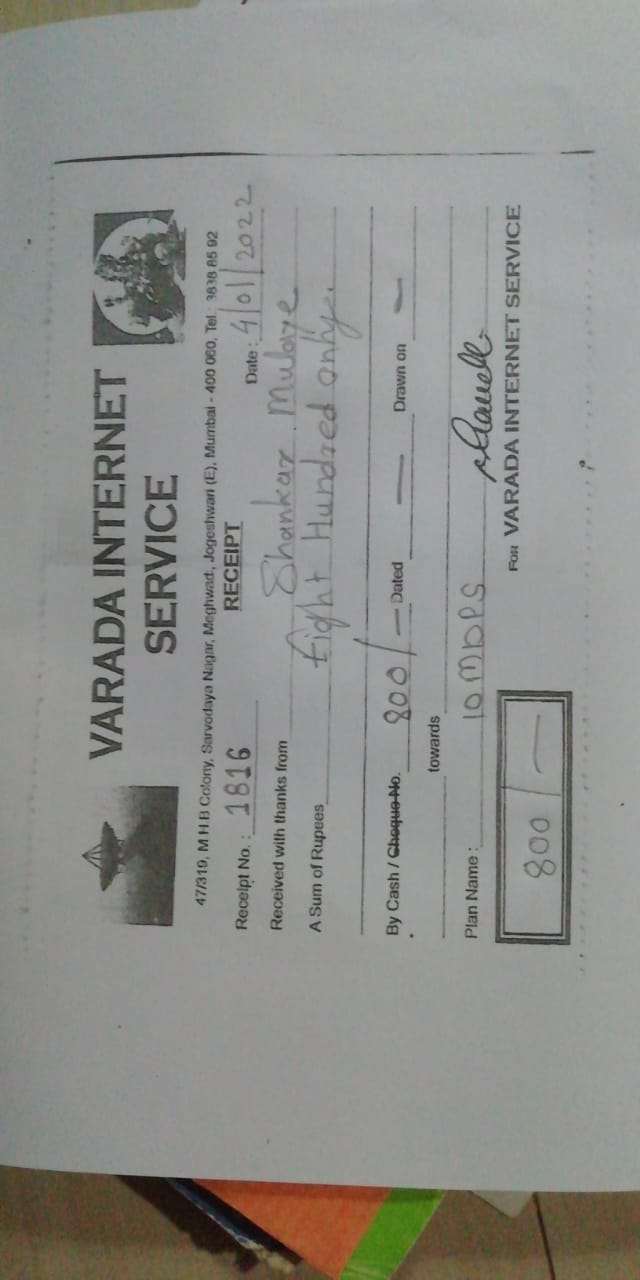 VARADA INTERNET
SERVICE
47/319, M H B Colony, Sarvodaya Nagar, Meghwad, Jogeshwari (E), Mumbai - 400 060, Tel.: 3838 85 92
RECEIPT
Receipt No. : 1816 Date : 4/01/2022
Received with thanks from Shankar Mulaye
A Sum of Rupees Eight Hundred only.
By Cash / Cheque No. 800/- Dated — Drawn on —
towards
Plan Name : 10 MBPS
800/-
FOR VARADA INTERNET SERVICE